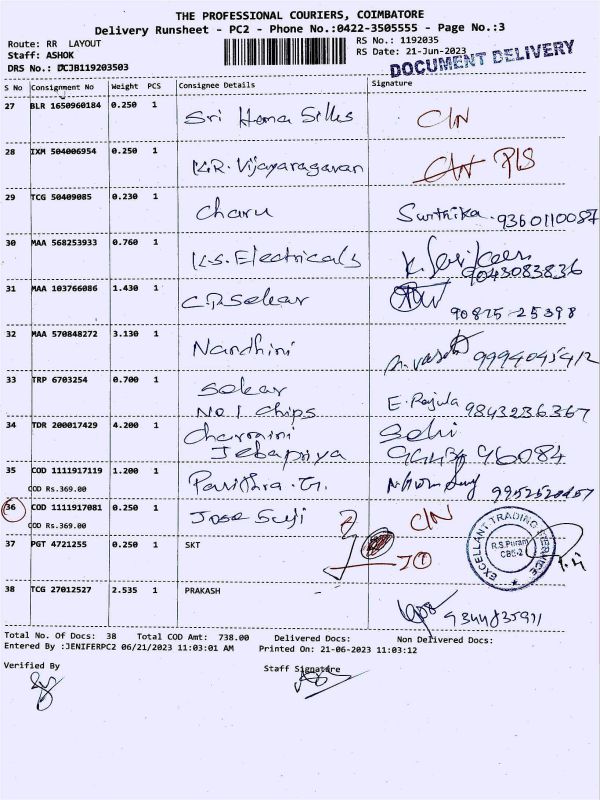 THE PROFESSIONAL COURIERS, COIMBATORE
Delivery Runsheet - PC2 - Phone No.:0422-3505555 - Page No.:3
Route: RR LAYOUT
RS No.: 1192035
Staff: ASHOK
RS Date: 21-Jun-2023
DRS No.: DCJB119203503
DOCUMENT DELIVERY
S No Consignment No Weight PCS Consignee Details Signature
27 BLR 1650960184 0.250 1 Sri Hema Silks C/N
28 IXM 504006954 0.250 1 K.R. Vijayaragavan C/N P/S
29 TCG 50409085 0.230 1 Charu Surthika. 9360110087
30 MAA 568253933 0.760 1 K.S. Electricals
9043083836
31 MAA 103766086 1.430 1 C.R. Sekar
90875-25398
32 MAA 570848272 3.130 1 Nandhini 9994045912
33 TRP 6703254 0.700 1 Sekar
No.1 Chips E. 9843236367
34 TDR 200017429 4.200 1
Jebapriya
35 COD 1111917119 1.200 1 Pavithra. G.
COD Rs.369.00
36 COD 1111917081 0.250 1 Jose Suji C/N
COD Rs.369.00
37 PGT 4721255 0.250 1 SKT
EXCELLANT TRADING SERVICE
R.S.Puram
CBE-2
38 TCG 27012527 2.535 1 PRAKASH
9344835911
Total No. Of Docs: 38 Total COD Amt: 738.00 Delivered Docs: Non Delivered Docs:
Entered By :JENIFERPC2 06/21/2023 11:03:01 AM Printed On: 21-06-2023 11:03:12
Verified By Staff Signature